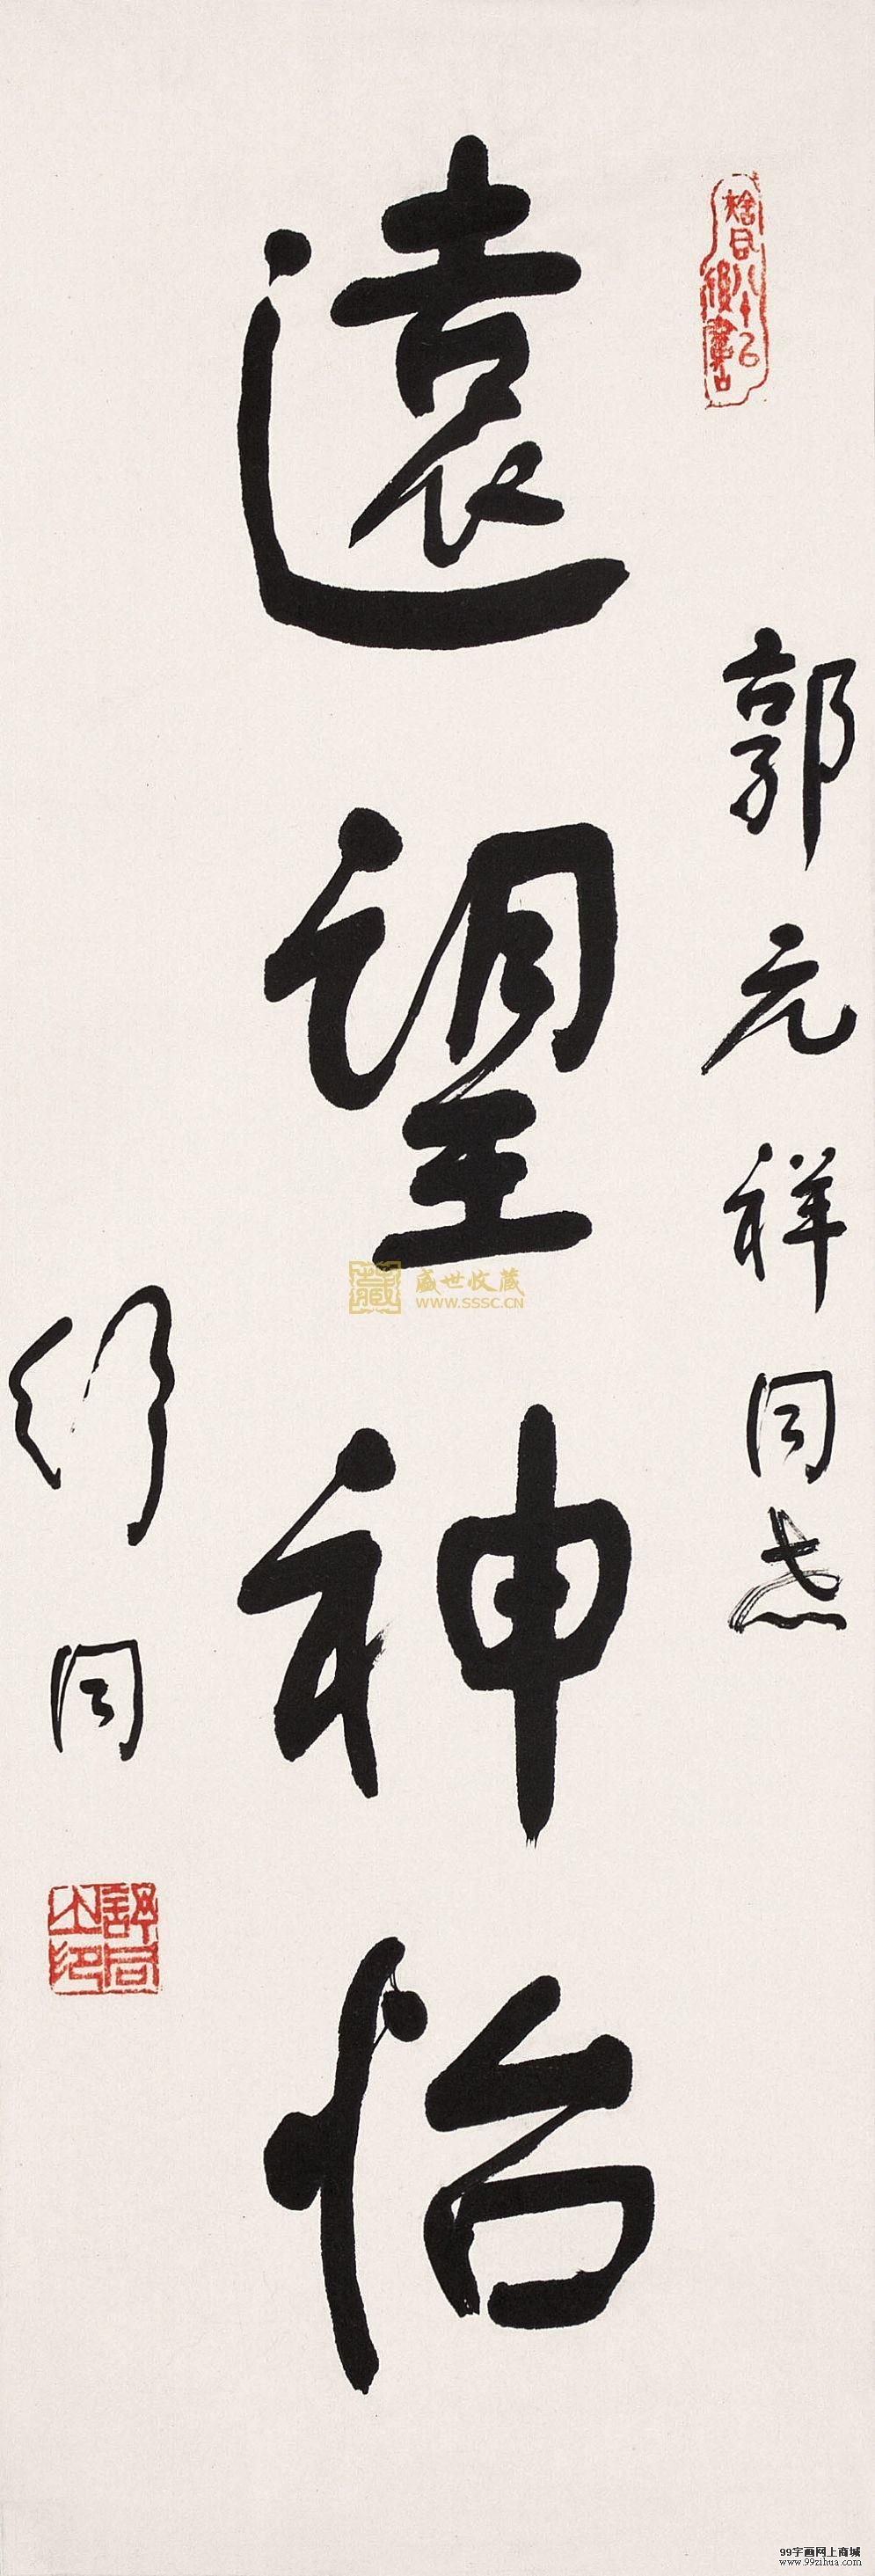 郭元祥同志
遠望神怡
舒同
舒同之印
盛世收藏
WWW.SSSC.CN
99字画网上商城
www.99zihua.com